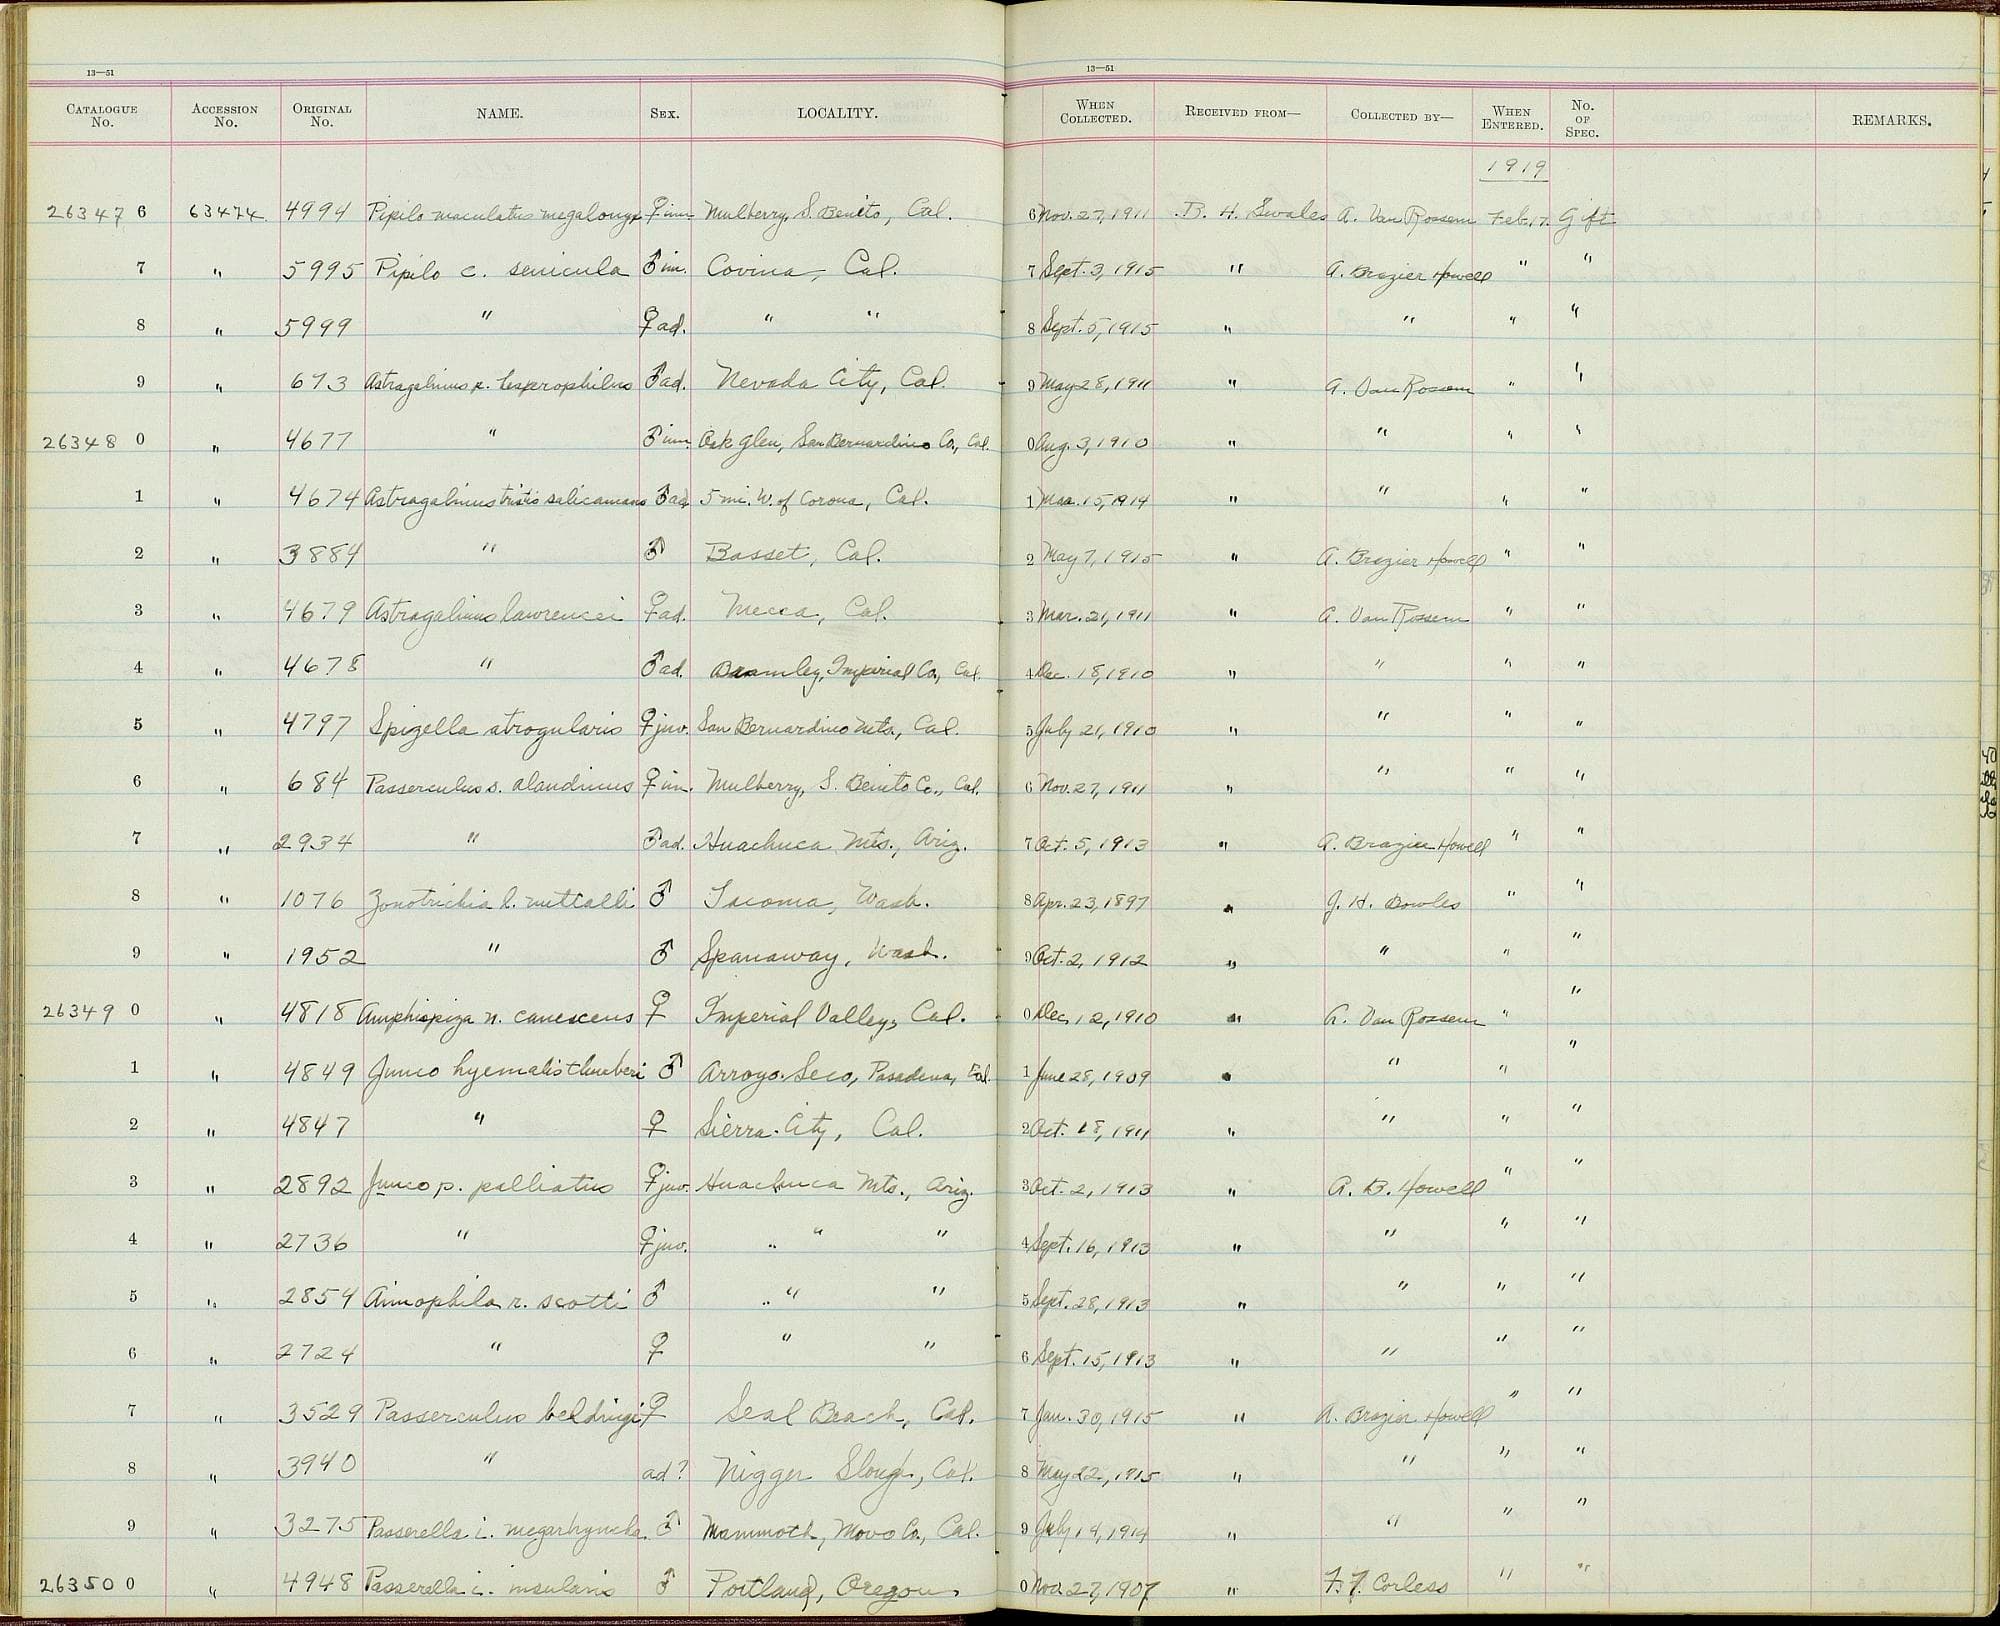 13—51
13—51
CATALOGUE No. ACCESSION No. ORIGINAL No. NAME. SEX. LOCALITY. WHEN COLLECTED. RECEIVED FROM— COLLECTED BY— WHEN ENTERED. No. OF SPEC. REMARKS.
1919
263476 63474 4994 Pipilo maculatus megalonyx ♀ im. Mulberry, S. Benito, Cal. 6 Nov. 27, 1911 B. H. Swales A. Van Rossem Feb. 17. Gift
7 " 5995 Pipilo c. senicula ♂ im. Covina, Cal. 7 Sept. 3, 1915 " A. Brazier Howell " "
8 " 5999 " ♀ ad. " " 8 Sept. 5, 1915 " " " "
9 " 673 Astragalinus p. hesperophilus ♂ ad. Nevada City, Cal. 9 May 28, 1911 " A. Van Rossem " "
263480 " 4677 " ♂ im. Oak Glen, San Bernardino Co., Cal. 0 Aug. 3, 1910 " " " "
1 " 4674 Astragalinus tristis salicamans ♂ ad. 5 mi. W. of Corona, Cal. 1 Mar. 15, 1914 " " " "
2 " 3884 " ♂ Basset, Cal. 2 May 7, 1915 " A. Brazier Howell " "
3 " 4679 Astragalinus lawrencei ♀ ad. Mecca, Cal. 3 Mar. 21, 1911 " A. Van Rossem " "
4 " 4678 " ♂ ad. Imperial Co., Cal. 4 Dec. 18, 1910 " " " "
5 " 4797 Spizella atrogularis ♀ juv. San Bernardino Mts., Cal. 5 July 21, 1910 " " " "
6 " 684 Passerculus s. alaudinus ♀ im. Mulberry, S. Benito Co., Cal. 6 Nov. 27, 1911 " " " "
7 " 2934 " ♂ ad. Huachuca Mts., Ariz. 7 Oct. 5, 1913 " A. Brazier Howell " "
8 " 1076 Zonotrichia l. nuttalli ♂ Tacoma, Wash. 8 Apr. 23, 1897 " J. H. Bowles " "
9 " 1952 " ♂ Spanaway, Wash. 9 Oct. 2, 1912 " " " "
263490 " 4818 Amphispiza n. canescens ♀ Imperial Valley, Cal. 0 Dec. 12, 1910 " A. Van Rossem " "
1 " 4849 Junco hyemalis thurberi ♂ Arroyo Seco, Pasadena, Cal. 1 June 28, 1909 " " " "
2 " 4847 " ♀ Sierra City, Cal. 2 Oct. 18, 1911 " " " "
3 " 2892 Junco p. palliatus ♀ juv. Huachuca Mts., Ariz. 3 Oct. 2, 1913 " A. B. Howell " "
4 " 2736 " ♀ juv. " " " 4 Sept. 16, 1913 " " " "
5 " 2854 Aimophila r. scotti ♂ " " " 5 Sept. 28, 1913 " " " "
6 " 2724 " ♀ " " 6 Sept. 15, 1913 " " " "
7 " 3529 Passerculus beldingi ♀ Seal Beach, Cal. 7 Jan. 30, 1915 " A. Brazier Howell " "
8 " 3940 " ad? Nigger Slough, Cal. 8 May 22, 1915 " " " "
9 " 3275 Passerella i. megarhyncha. ♂ Mammoth, Mono Co., Cal. 9 July 14, 1914 " " " "
263500 " 4948 Passerella i. insularis ♂ Portland, Oregon. 0 Nov. 27, 1907 " F. F. Corless " "